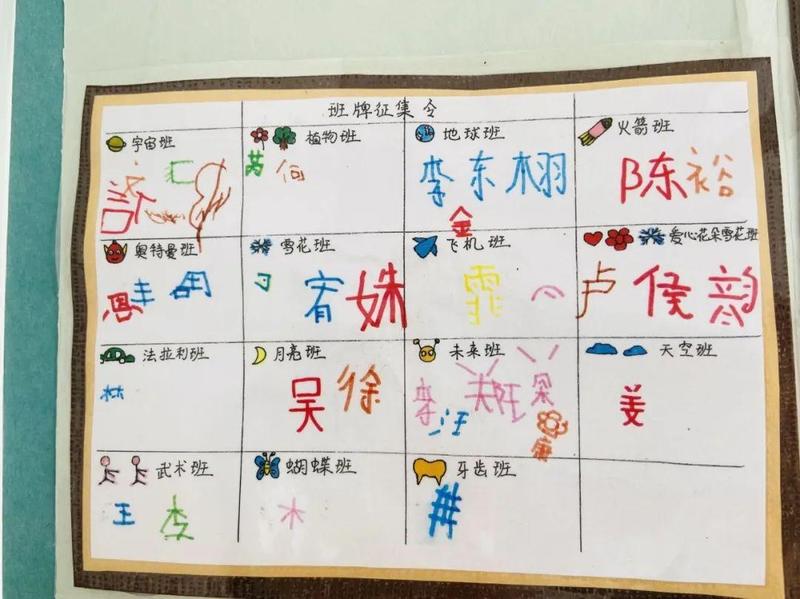 班牌征集令
宇宙班
植物班
地球班
火箭班
汇
芮 何
李 东 木 栩
金
陈 裕
奥特曼班
雪花班
飞机班
爱心花朵雪花班
丰 周
习 宥 姝
霏
卢 侯 韵
法拉利班
月亮班
未来班
天空班
林
吴 徐
李 汪 郑 班
唐
姜
武术班
蝴蝶班
牙齿班
王 李
木